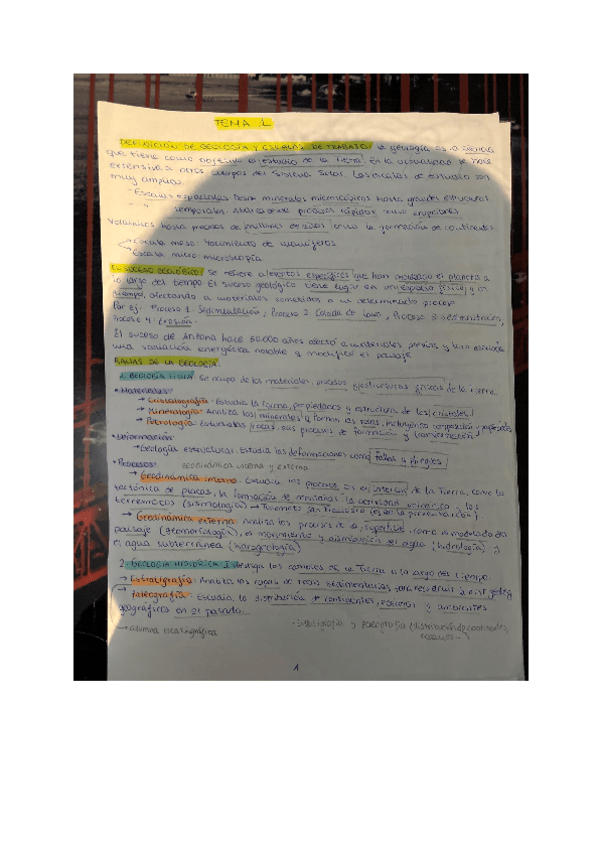 TEMA 1
DEFINICIÓN DE GEOLOGÍA Y ESCALAS DE TRABAJO: la geología es la ciencia
que tiene como objetivo el estudio de la Tierra. En la actualidad se hace
extensiva a otros cuerpos del Sistema Solar. Las escalas de estudio son
muy amplias.
- Escalas espaciales: Desde minerales microscópicos hasta grandes estructuras
temporales: desde procesos rápidos como erupciones
Volcánicas hasta procesos de millones de años como la formación de continentes
Escala meso: Yacimiento de
Escala micro: microscopía
EL SUCESO GEOLÓGICO: Se refiere a eventos específicos que han el planeta a
lo largo del tiempo. El suceso geológico tiene lugar en un espacio físico y un
tiempo, afectando a materiales sometidos a un determinado proceso
Por ej: Proceso 1: Sedimentación, Proceso 2: Colada de lavas, Proceso 3: sedimentación,
Proceso 4: Erosión.
El suceso de hace 50.000 años afectó a materiales previos y tuvo
una variación energética notable y modificó el paisaje
RAMAS DE LA GEOLOGÍA:
1. GEOLOGÍA FÍSICA: Se ocupa de los materiales, procesos y estructuras físicas de la Tierra.
• Materiales:
→ Cristalografía: Estudia la forma, propiedades y estructura de los cristales.
→ Mineralogía: Analiza los minerales q forman las rocas, incluyendo composición y propiedades
→ Petrología: Estudia las rocas, sus procesos de formación y transformación
• Deformación:
• Geología estructural: Estudia las deformaciones como fallas y pliegues
• Procesos: geodinámica interna y externa
→ Geodinámica interna: Estudia los procesos en el interior de la Tierra, como la
tectónica de placas, la formación de montañas, la actividad volcánica y los
terremotos (sismología) → Terremoto San Francisco
→ Geodinámica externa: Analiza los procesos de la superficie, como el modelado del
paisaje (geomorfología), el movimiento y distribución del agua (hidrología) y
el agua subterránea (hidrogeología)
2. GEOLOGÍA HISTÓRICA: Investiga los cambios de la Tierra a lo largo del tiempo
→ Estratigrafía: Analiza las capas de rocas sedimentarias para reconstruir la hist geológ
→ Paleogeografía: Estudia la distribución de continentes, océanos y ambientes
geográficos en el pasado...
→ columna estratigráfica
• Estratigrafía y paleografía (distribución de continentes,
océanos...
1